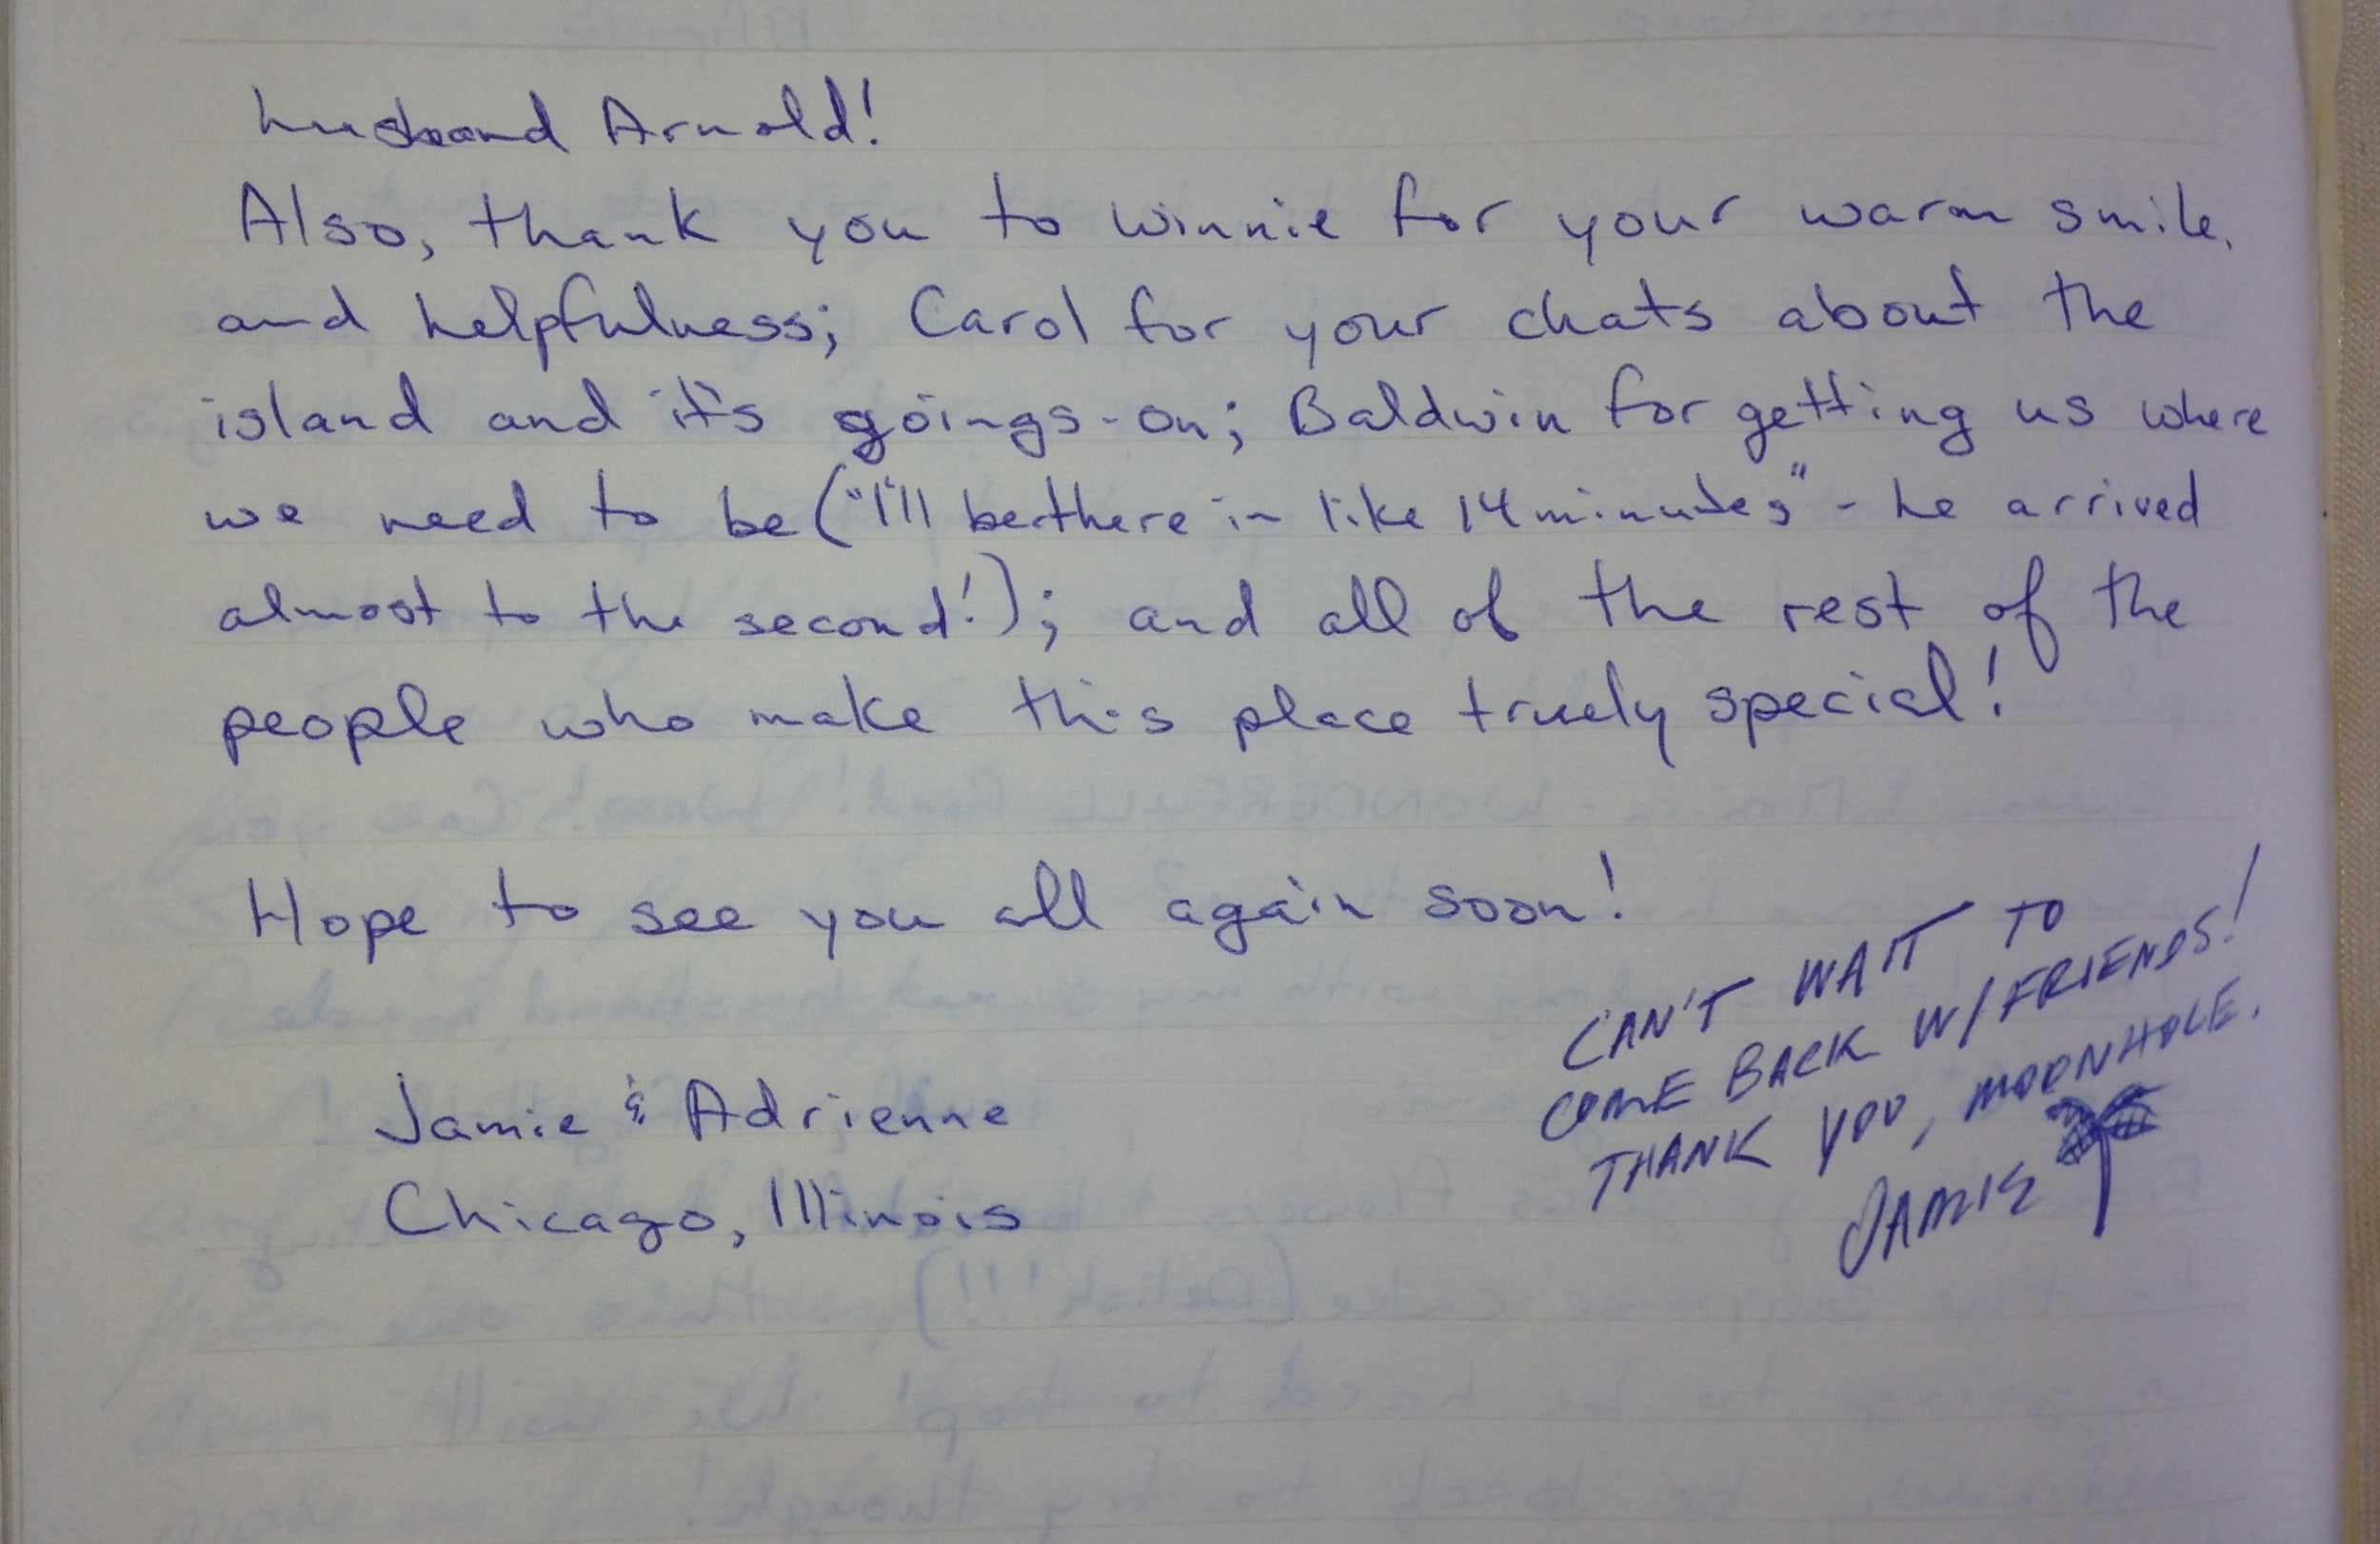 husband Arnold!
Also, thank you to Winnie for your warm smile,
and helpfulness; Carol for your chats about the
island and it's goings-on; Baldwin for getting us where
we need to be ("I'll be there in like 14 minutes" - he arrived
almost to the second!); and all of the rest of the
people who make this place truely special!
Hope to see you all again soon!
Jamie & Adrienne
Chicago, Illinois
CAN'T WAIT TO
COME BACK W/FRIENDS!
THANK YOU, MOONHOLE.
JAMIE